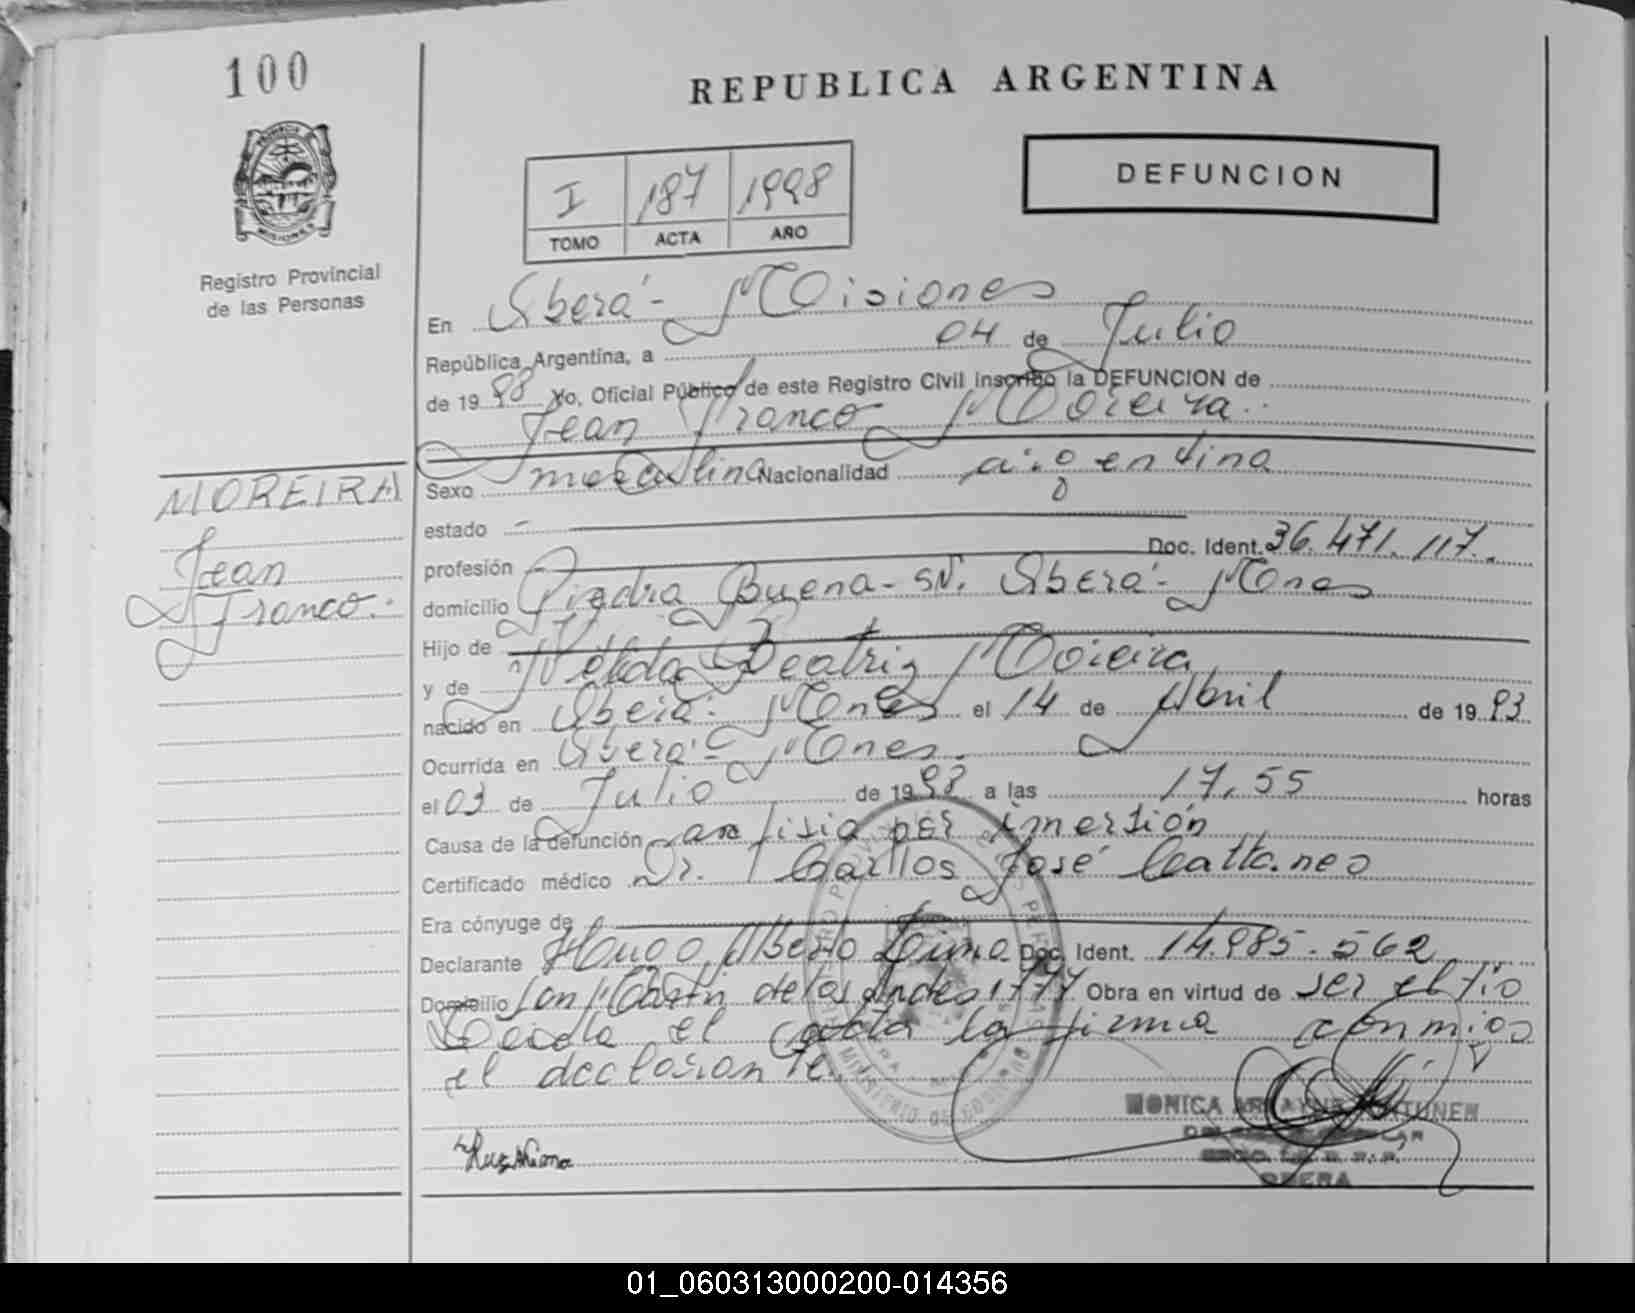 100
REPUBLICA ARGENTINA
DEFUNCION
I 187 1998
TOMO ACTA AÑO
PROVINCIA DE
MISIONES
Registro Provincial
de las Personas
En Oberá - Misiones
República Argentina, a 04 de Julio
de 19 98 Yo, Oficial Público de este Registro Civil inscribo la DEFUNCION de
Jean Franco Moreira.
MOREIRA
Jean
Franco.
Sexo masculino Nacionalidad argentina
estado
profesión Doc. Ident. 36.471.117.
domicilio Piedra Buena - s/N. Oberá - Mnes
Hijo de
y de Nélida Beatriz Moreira
nacido en Oberá - Mnes el 14 de Abril de 19 93
Ocurrida en Oberá - Mnes.
el 03 de Julio de 19 98 a las 17,55 horas
Causa de la defunción asfisia por inmersión
Certificado médico Dr. Carllos José Cattaneo
Era cónyuge de
Declarante Hugo Alberto Doc. Ident. 14.985.562
Domicilio San Martín de los Andes 1777 Obra en virtud de ser el tío
Leída el acta la firma conmigo
el declarante.
MINISTERIO DE GOBIERNO
MONICA
OBERA
01_060313000200-014356